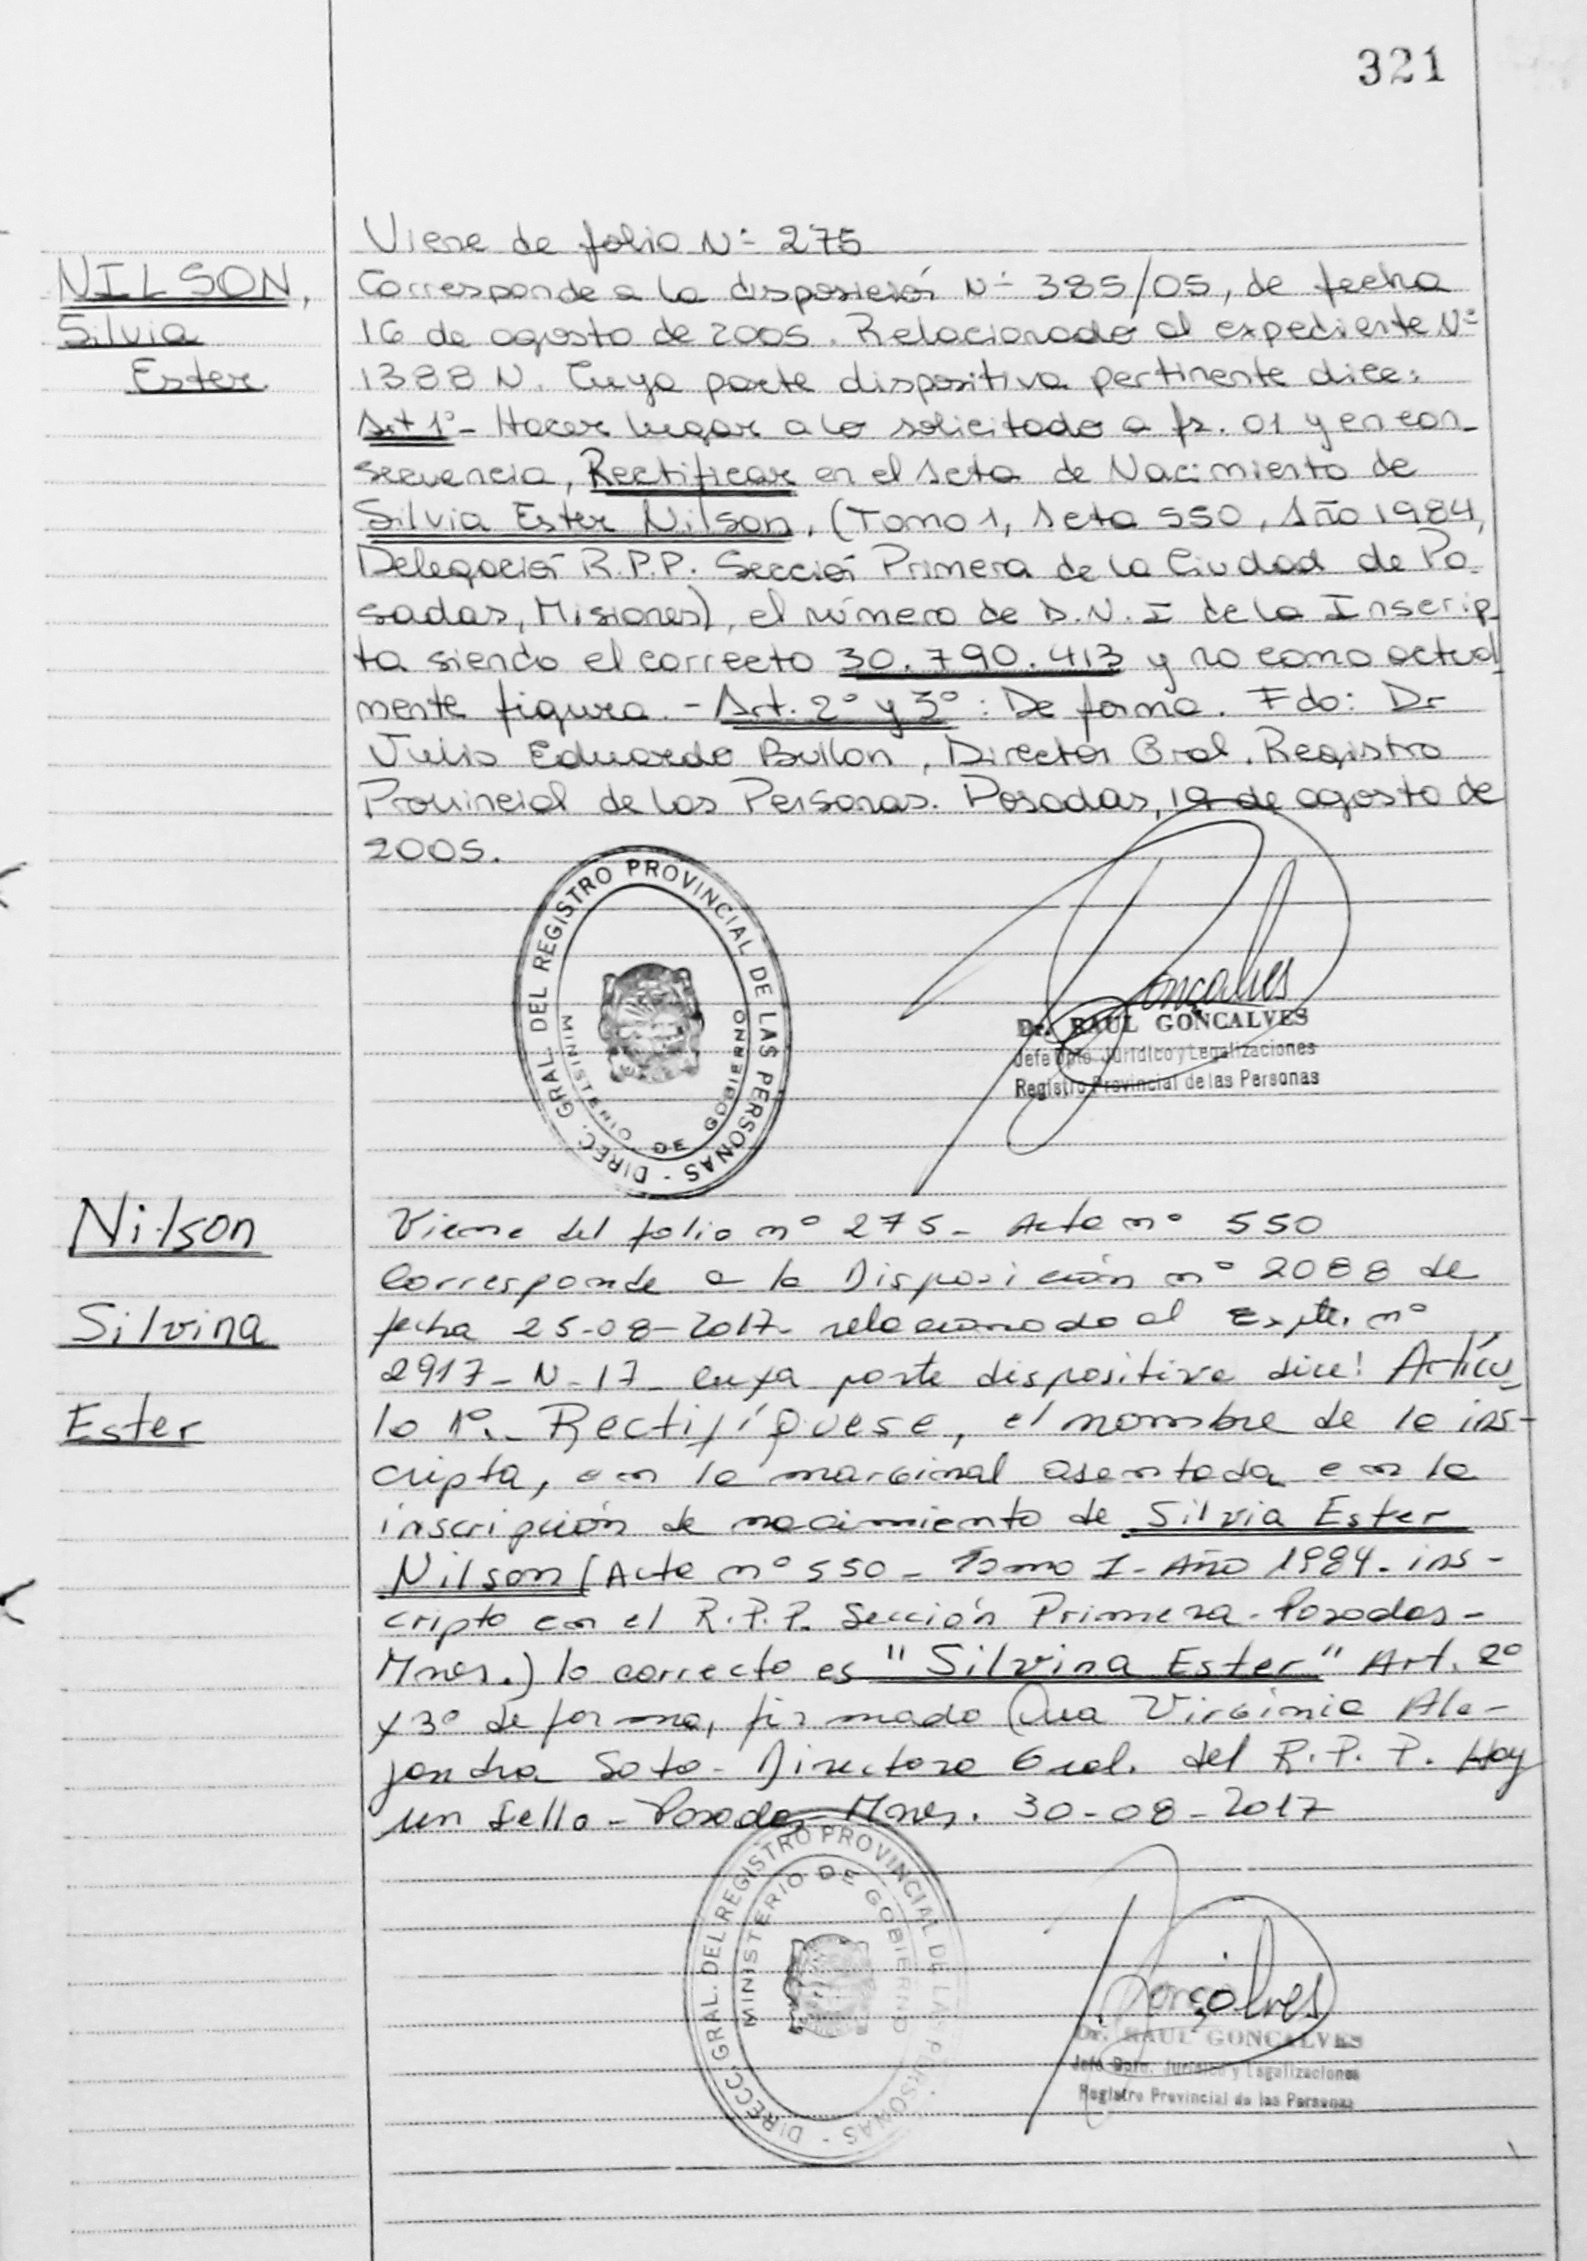 321
Viene de folio Nº 275
NILSON,
Silvia
Ester
Corresponde a la disposición Nº 385/05, de fecha
16 de agosto de 2005. Relacionado al expediente Nº
1388 N. Cuya parte dispositiva pertinente dice:
Art 1º- Hacer lugar a lo solicitado a fs. 01 y en con-
secuencia, Rectificar en el Acta de Nacimiento de
Silvia Ester Nilson, (Tomo 1, Acta 550, Año 1984,
Delegación R.P.P. Sección Primera de la Ciudad de Po-
sadas, Misiones), el número de D.N.I de la Inscrip-
ta siendo el correcto 30.790.413 y no como actual
mente figura. - Art. 2º y 3º: De forma. Fdo: Dr
Julio Eduardo Bullon, Director Gral. Registro
Provincial de las Personas. Posadas, 19 de agosto de
2005.
DIREC. GRAL. DEL REGISTRO PROVINCIAL DE LAS PERSONAS -
MINISTERIO DE GOBIERNO
Gonçalves
Dr. RAUL GONCALVES
Jefe Dpto. Jurídico y Legalizaciones
Registro Provincial de las Personas
Nilson
Silvina
Ester
Viene del folio nº 275- Acta nº 550
Corresponde a la Disposición nº 2088 de
fecha 25-08-2017- relacionado al Expte. nº
2917-N-17- cuya parte dispositiva dice: Artícu-
lo 1º.- Rectifíquese, el nombre de la ins-
cripta, en la marginal asentada en la
inscripción de nacimiento de Silvia Ester
Nilson (Acta nº 550- Tomo I- Año 1984- ins-
cripto en el R.P.P. Sección Primera- Posadas-
Mnes.) lo correcto es "Silvina Ester" Art. 2º
y 3º de forma, firmado Virginia Ale-
jandra Soto- Directora Gral. del R.P.P. Hay
un sello- Posadas- Mnes. 30-08-2017
DIRECC. GRAL. DEL REGISTRO PROVINCIAL DE LAS PERSONAS -
MINISTERIO DE GOBIERNO
Gonçalves
Dr. RAUL GONCALVES
Jefe Dpto. Jurídico y Legalizaciones
Registro Provincial de las Personas